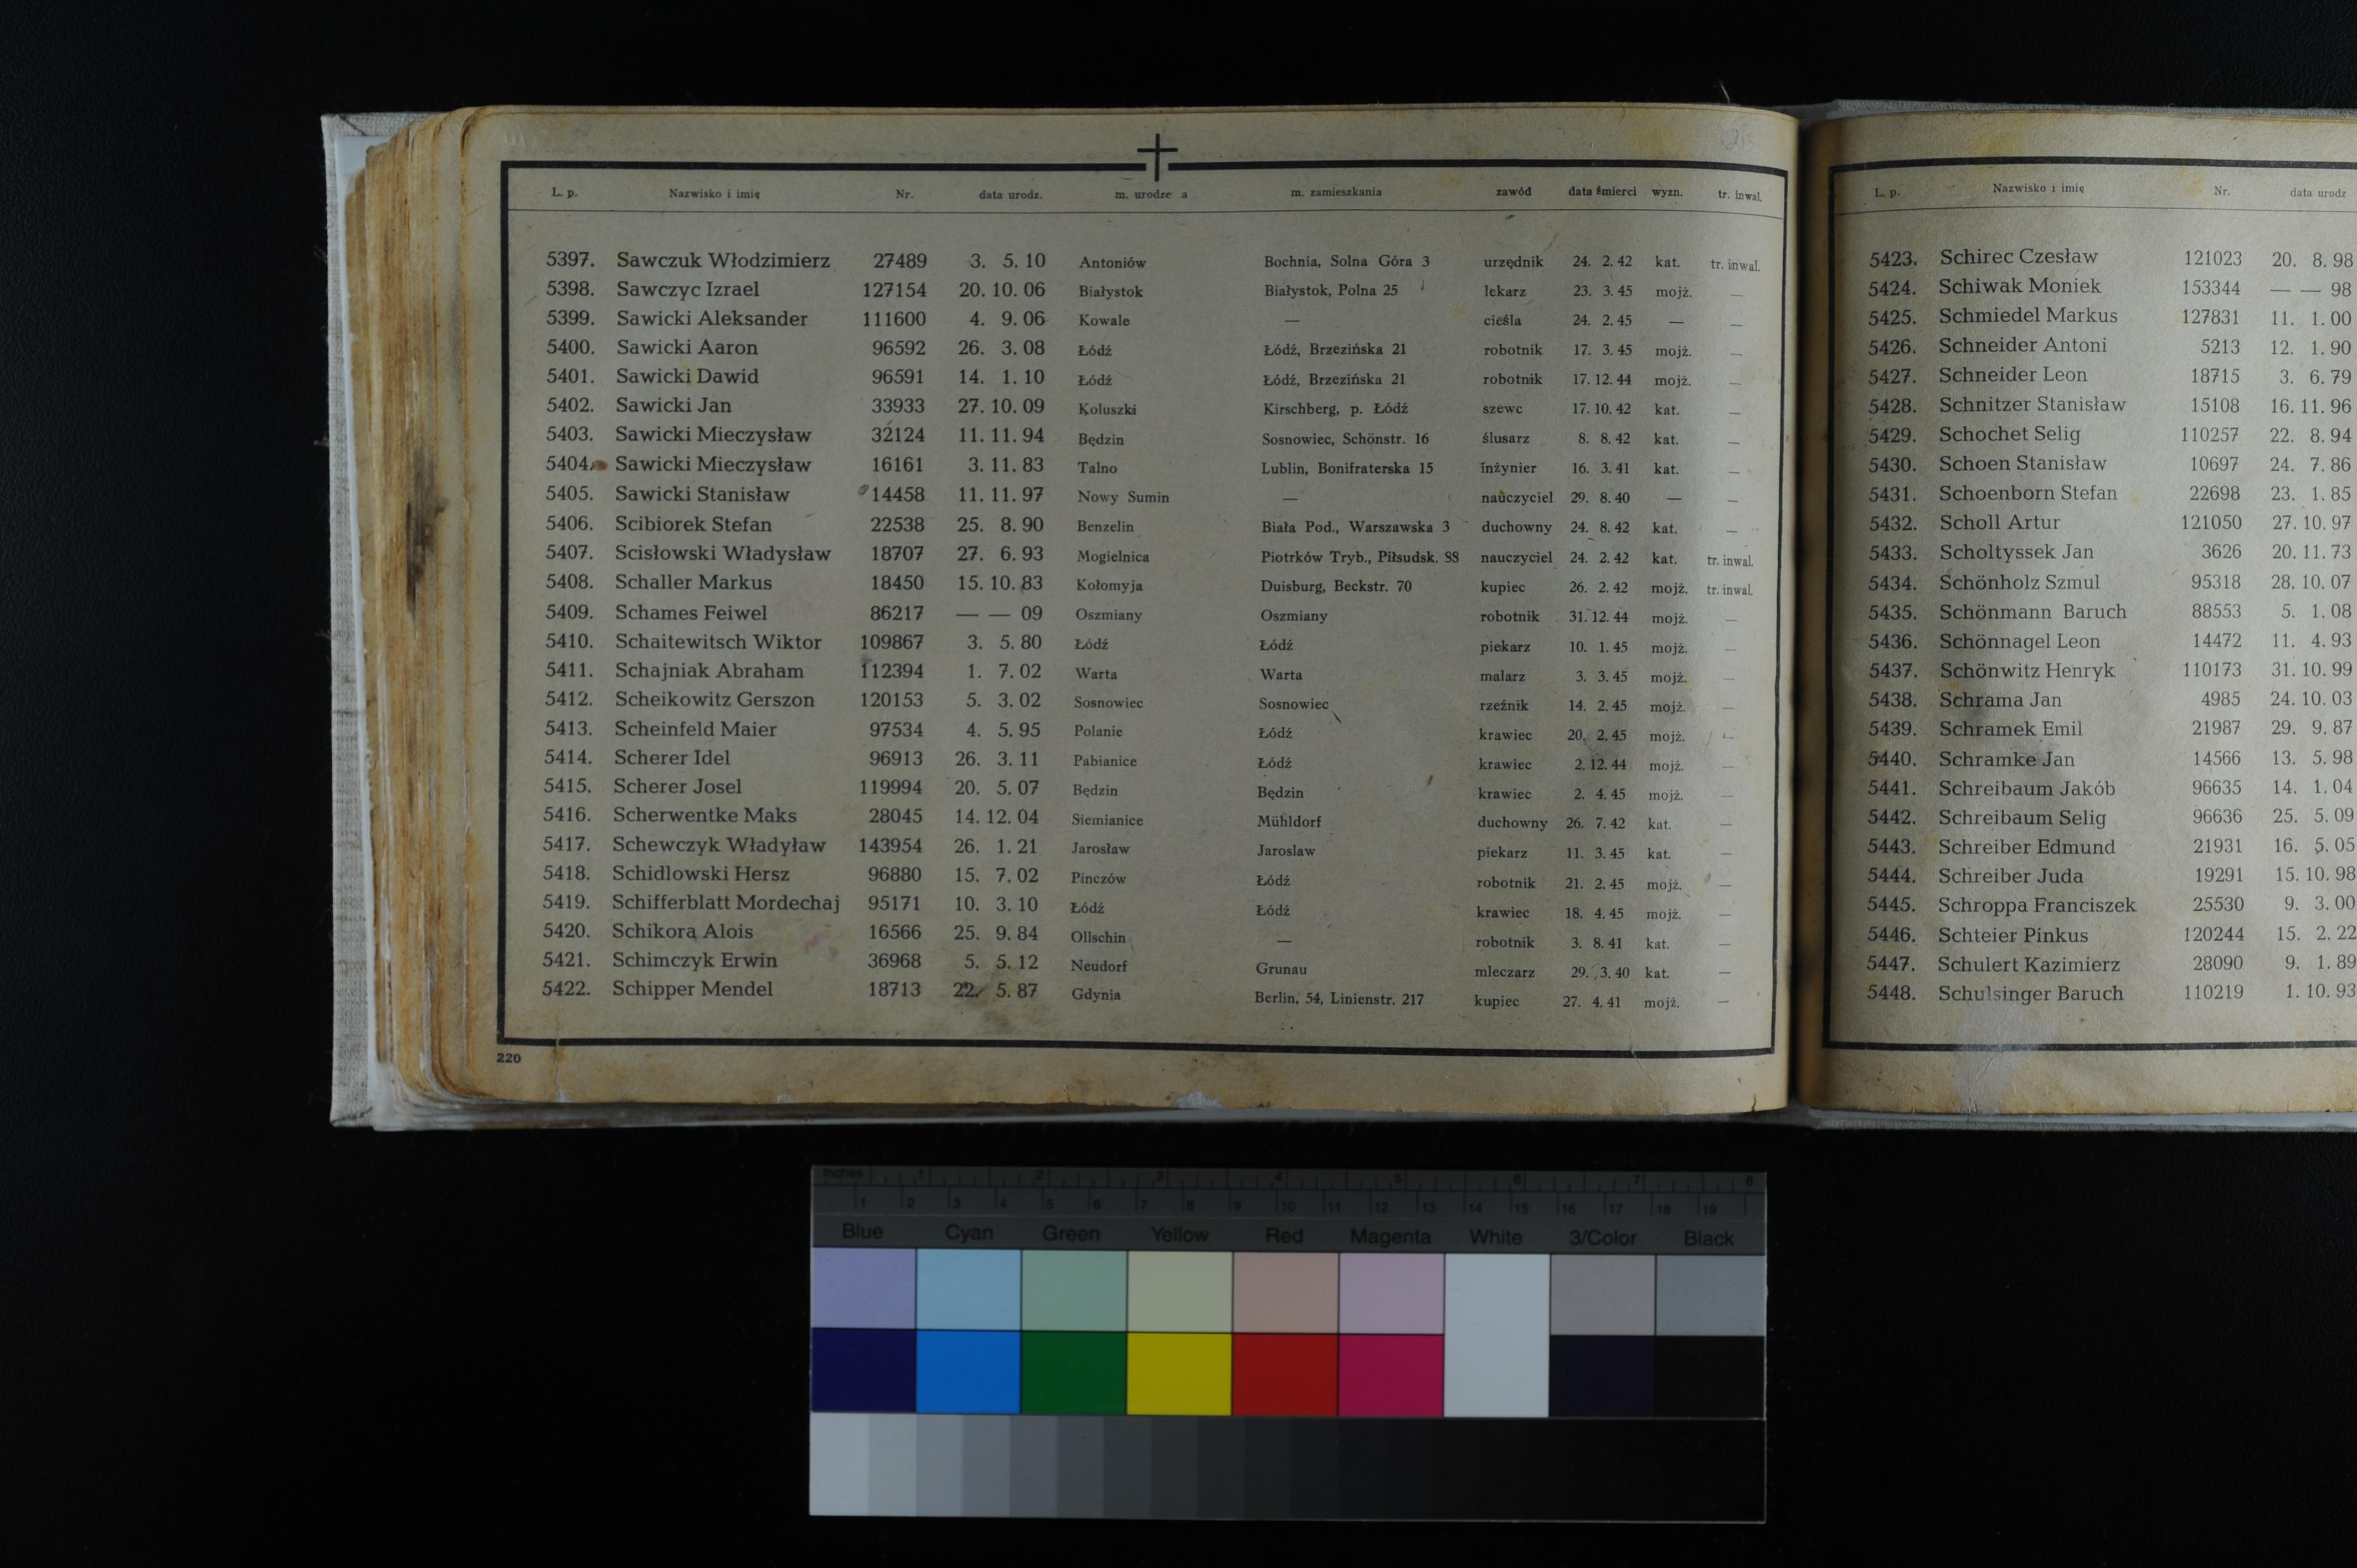 L. p. Nazwisko i imię Nr. data urodz. m. urodze a m. zamieszkania zawód data śmierci wyzn. tr. inwal.
5397. Sawczuk Włodzimierz 27489 3. 5. 10 Antoniów Bochnia, Solna Góra 3 urzędnik 24. 2. 42 kat. tr. inwal.
5398. Sawczyc Izrael 127154 20. 10. 06 Białystok Białystok, Polna 25 lekarz 23. 3. 45 mojż. —
5399. Sawicki Aleksander 111600 4. 9. 06 Kowale — cieśla 24. 2. 45 — —
5400. Sawicki Aaron 96592 26. 3. 08 Łódź Łódź, Brzezińska 21 robotnik 17. 3. 45 mojż. —
5401. Sawicki Dawid 96591 14. 1. 10 Łódź Łódź, Brzezińska 21 robotnik 17. 12. 44 mojż. —
5402. Sawicki Jan 33933 27. 10. 09 Koluszki Kirschberg, p. Łódź szewc 17. 10. 42 kat. —
5403. Sawicki Mieczysław 32124 11. 11. 94 Będzin Sosnowiec, Schönstr. 16 ślusarz 8. 8. 42 kat. —
5404. Sawicki Mieczysław 16161 3. 11. 83 Talno Lublin, Bonifraterska 15 inżynier 16. 3. 41 kat. —
5405. Sawicki Stanisław 14458 11. 11. 97 Nowy Sumin — nauczyciel 29. 8. 40 — —
5406. Scibiorek Stefan 22538 25. 8. 90 Benzelin Biała Pod., Warszawska 3 duchowny 24. 8. 42 kat. —
5407. Scisłowski Władysław 18707 27. 6. 93 Mogielnica Piotrków Tryb., Piłsudsk. 88 nauczyciel 24. 2. 42 kat. tr. inwal.
5408. Schaller Markus 18450 15. 10. 83 Kołomyja Duisburg, Beckstr. 70 kupiec 26. 2. 42 mojż. tr. inwal.
5409. Schames Feiwel 86217 — — 09 Oszmiany Oszmiany robotnik 31. 12. 44 mojż. —
5410. Schaitewitsch Wiktor 109867 3. 5. 80 Łódź Łódź piekarz 10. 1. 45 mojż. —
5411. Schajniak Abraham 112394 1. 7. 02 Warta Warta malarz 3. 3. 45 mojż. —
5412. Scheikowitz Gerszon 120153 5. 3. 02 Sosnowiec Sosnowiec rzeźnik 14. 2. 45 mojż. —
5413. Scheinfeld Maier 97534 4. 5. 95 Polanie Łódź krawiec 20. 2. 45 mojż. —
5414. Scherer Idel 96913 26. 3. 11 Pabianice Łódź krawiec 2. 12. 44 mojż. —
5415. Scherer Josel 119994 20. 5. 07 Będzin Będzin krawiec 2. 4. 45 mojż. —
5416. Scherwentke Maks 28045 14. 12. 04 Siemianice Mühldorf duchowny 26. 7. 42 kat. —
5417. Schewczyk Władyław 143954 26. 1. 21 Jarosław Jaroslaw piekarz 11. 3. 45 kat. —
5418. Schidlowski Hersz 96880 15. 7. 02 Pinczów Łódź robotnik 21. 2. 45 mojż. —
5419. Schifferblatt Mordechaj 95171 10. 3. 10 Łódź Łódź krawiec 18. 4. 45 mojż. —
5420. Schikora Alois 16566 25. 9. 84 Ollschin — robotnik 3. 8. 41 kat. —
5421. Schimczyk Erwin 36968 5. 5. 12 Neudorf Grunau mleczarz 29. 3. 40 kat. —
5422. Schipper Mendel 18713 22. 5. 87 Gdynia Berlin, 54, Linienstr. 217 kupiec 27. 4. 41 mojż. —
220
L. p. Nazwisko i imię Nr. data urodz
5423. Schirec Czesław 121023 20. 8. 98
5424. Schiwak Moniek 153344 — — 98
5425. Schmiedel Markus 127831 11. 1. 00
5426. Schneider Antoni 5213 12. 1. 90
5427. Schneider Leon 18715 3. 6. 79
5428. Schnitzer Stanisław 15108 16. 11. 96
5429. Schochet Selig 110257 22. 8. 94
5430. Schoen Stanisław 10697 24. 7. 86
5431. Schoenborn Stefan 22698 23. 1. 85
5432. Scholl Artur 121050 27. 10. 97
5433. Scholtyssek Jan 3626 20. 11. 73
5434. Schönholz Szmul 95318 28. 10. 07
5435. Schönmann Baruch 88553 5. 1. 08
5436. Schönnagel Leon 14472 11. 4. 93
5437. Schönwitz Henryk 110173 31. 10. 99
5438. Schrama Jan 4985 24. 10. 03
5439. Schramek Emil 21987 29. 9. 87
5440. Schramke Jan 14566 13. 5. 98
5441. Schreibaum Jakób 96635 14. 1. 04
5442. Schreibaum Selig 96636 25. 5. 09
5443. Schreiber Edmund 21931 16. 5. 05
5444. Schreiber Juda 19291 15. 10. 98
5445. Schroppa Franciszek 25530 9. 3. 00
5446. Schteier Pinkus 120244 15. 2. 22
5447. Schulert Kazimierz 28090 9. 1. 89
5448. Schulsinger Baruch 110219 1. 10. 93
Inches 1 2 3 4 5 6 7 8
1 2 3 4 5 6 7 8 9 10 11 12 13 14 15 16 17 18 19
Blue Cyan Green Yellow Red Magenta White 3/Color Black